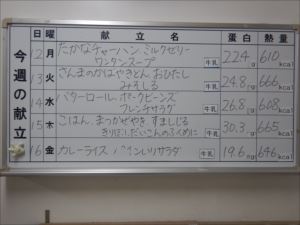 日 曜 献立名 蛋白 熱量
今週の献立
12 月 たかなチャーハン、ミルクゼリー
ワンタンスープ 牛乳 22.4g 610kcal
13 火 さんまのかばやきどん、おひたし
みそしる 牛乳 24.8g 666kcal
14 水 バターロール、ポークビーンズ
フレンチサラダ 牛乳 26.8g 608kcal
15 木 ごはん、まつかぜやき、すましじる
きりぼしだいこんのふくめに 牛乳 30.3g 665kcal
16 金 カレーライス パインいりサラダ 牛乳 19.6g 646kcal